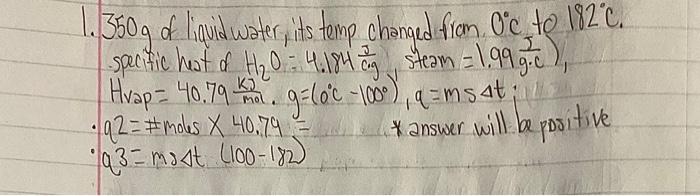 1. 350g of liquid water, its temp changed from 0°c to 182°c.
specific heat of H₂O = 4.184 J/c·g, steam = 1.99 J/g·c),
Hvap = 40.79 KJ/mol. g=(0°c -100°), q=ms⊿t;
• q2 = #moles X 40.79 = * answer will be positive
• q3 = ms⊿t (100-182)